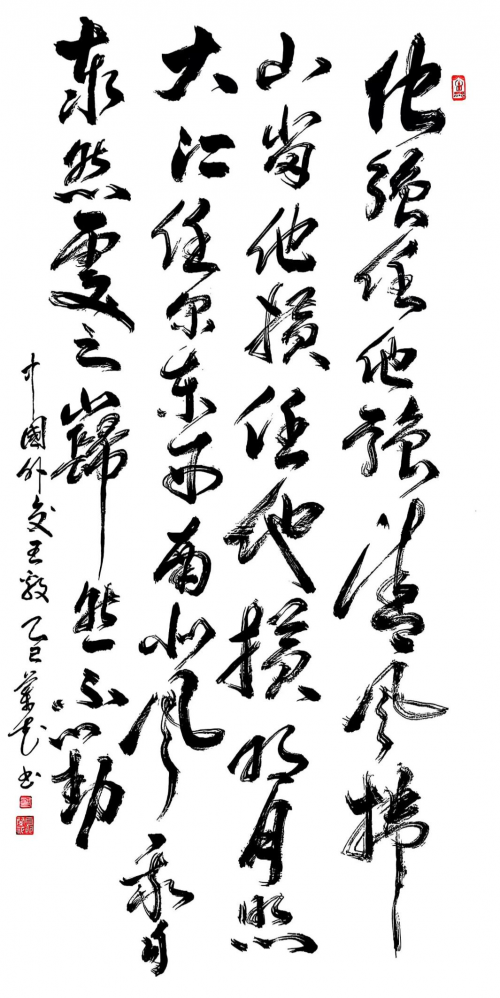 他强任他强清风拂
山岗他横任他横明月照
大江任尔东西南北风我自
泰然處之巋然不動
中國外交王毅乙巳书